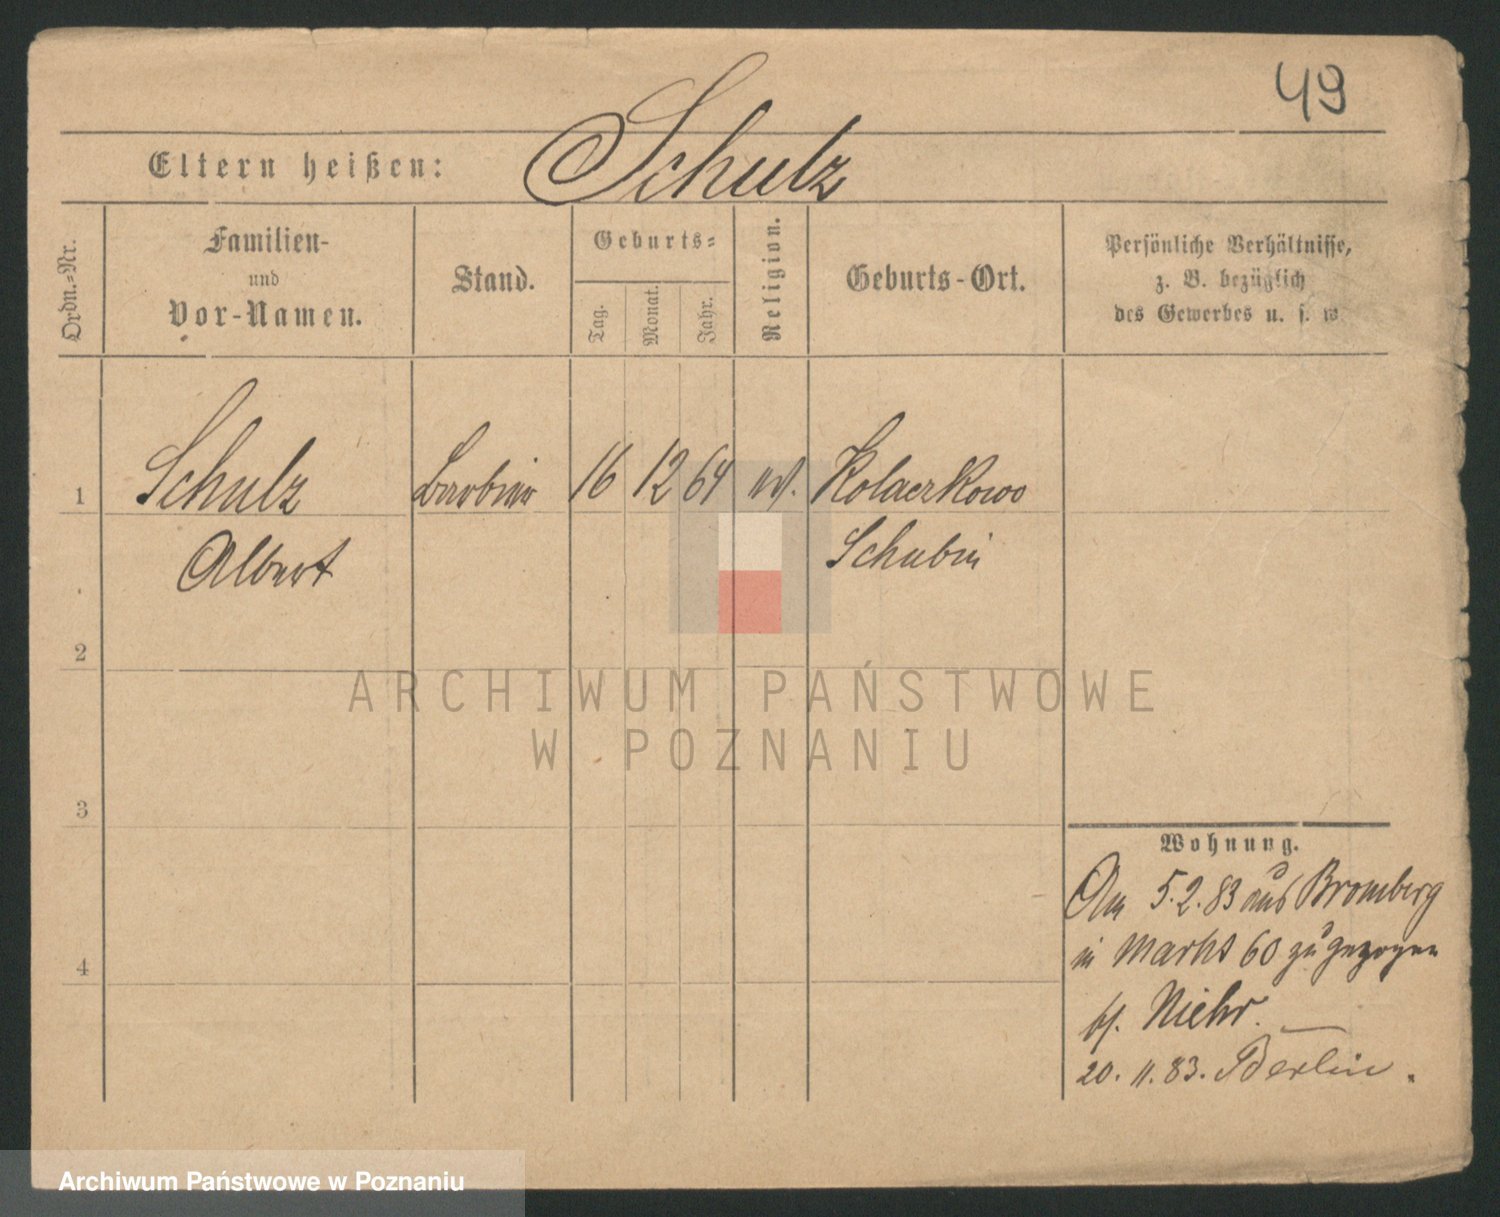 49
Eltern heißen: Schulz
Ordn.-Nr.
Familien-
und
Vor-Namen.
Stand.
Geburts-
Tag.
Monat.
Jahr.
Religion.
Geburts-Ort.
Persönliche Verhältnisse,
z. B. bezüglich
des Gewerbes u. s. w.
1 Schulz Barbier 16 12 64 Kolaczkowo
Albert Schubin
2
3
4
ARCHIWUM PAŃSTWOWE
W POZNANIU
Wohnung.
Am 5.2.83 aus Bromberg
in Markt 60 zugezogen
b/. Niehr.
20. 11. 83. Berlin.
Archiwum Państwowe w Poznaniu